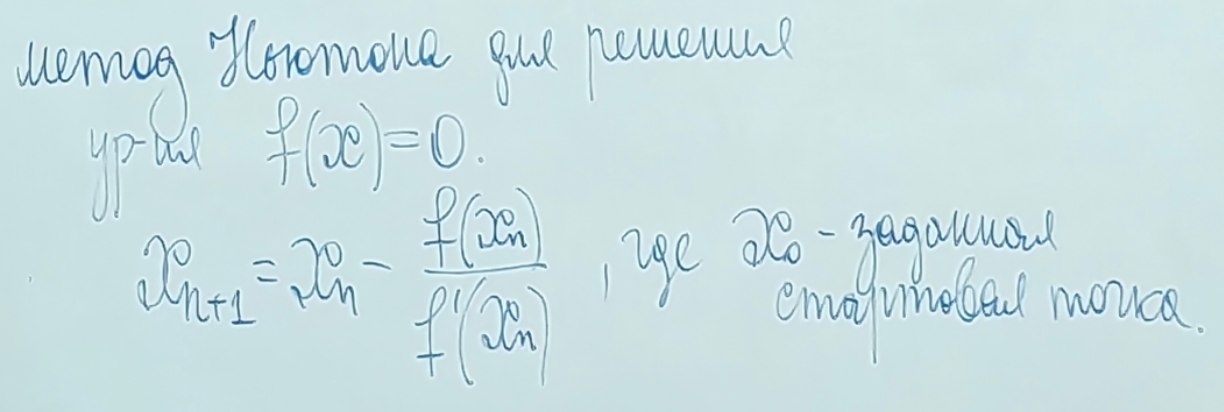 метод Ньютона для решения
ур-ия f(x)=0.
x_{n+1} = x_n - \frac{f(x_n)}{f'(x_n)}, где x_0 - заданная
стартовая точка.